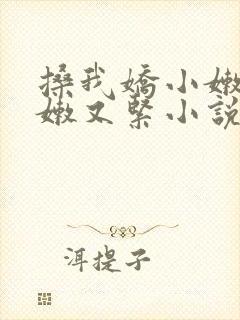 搡我嬌小嫩
嫩又緊小說
洱提子